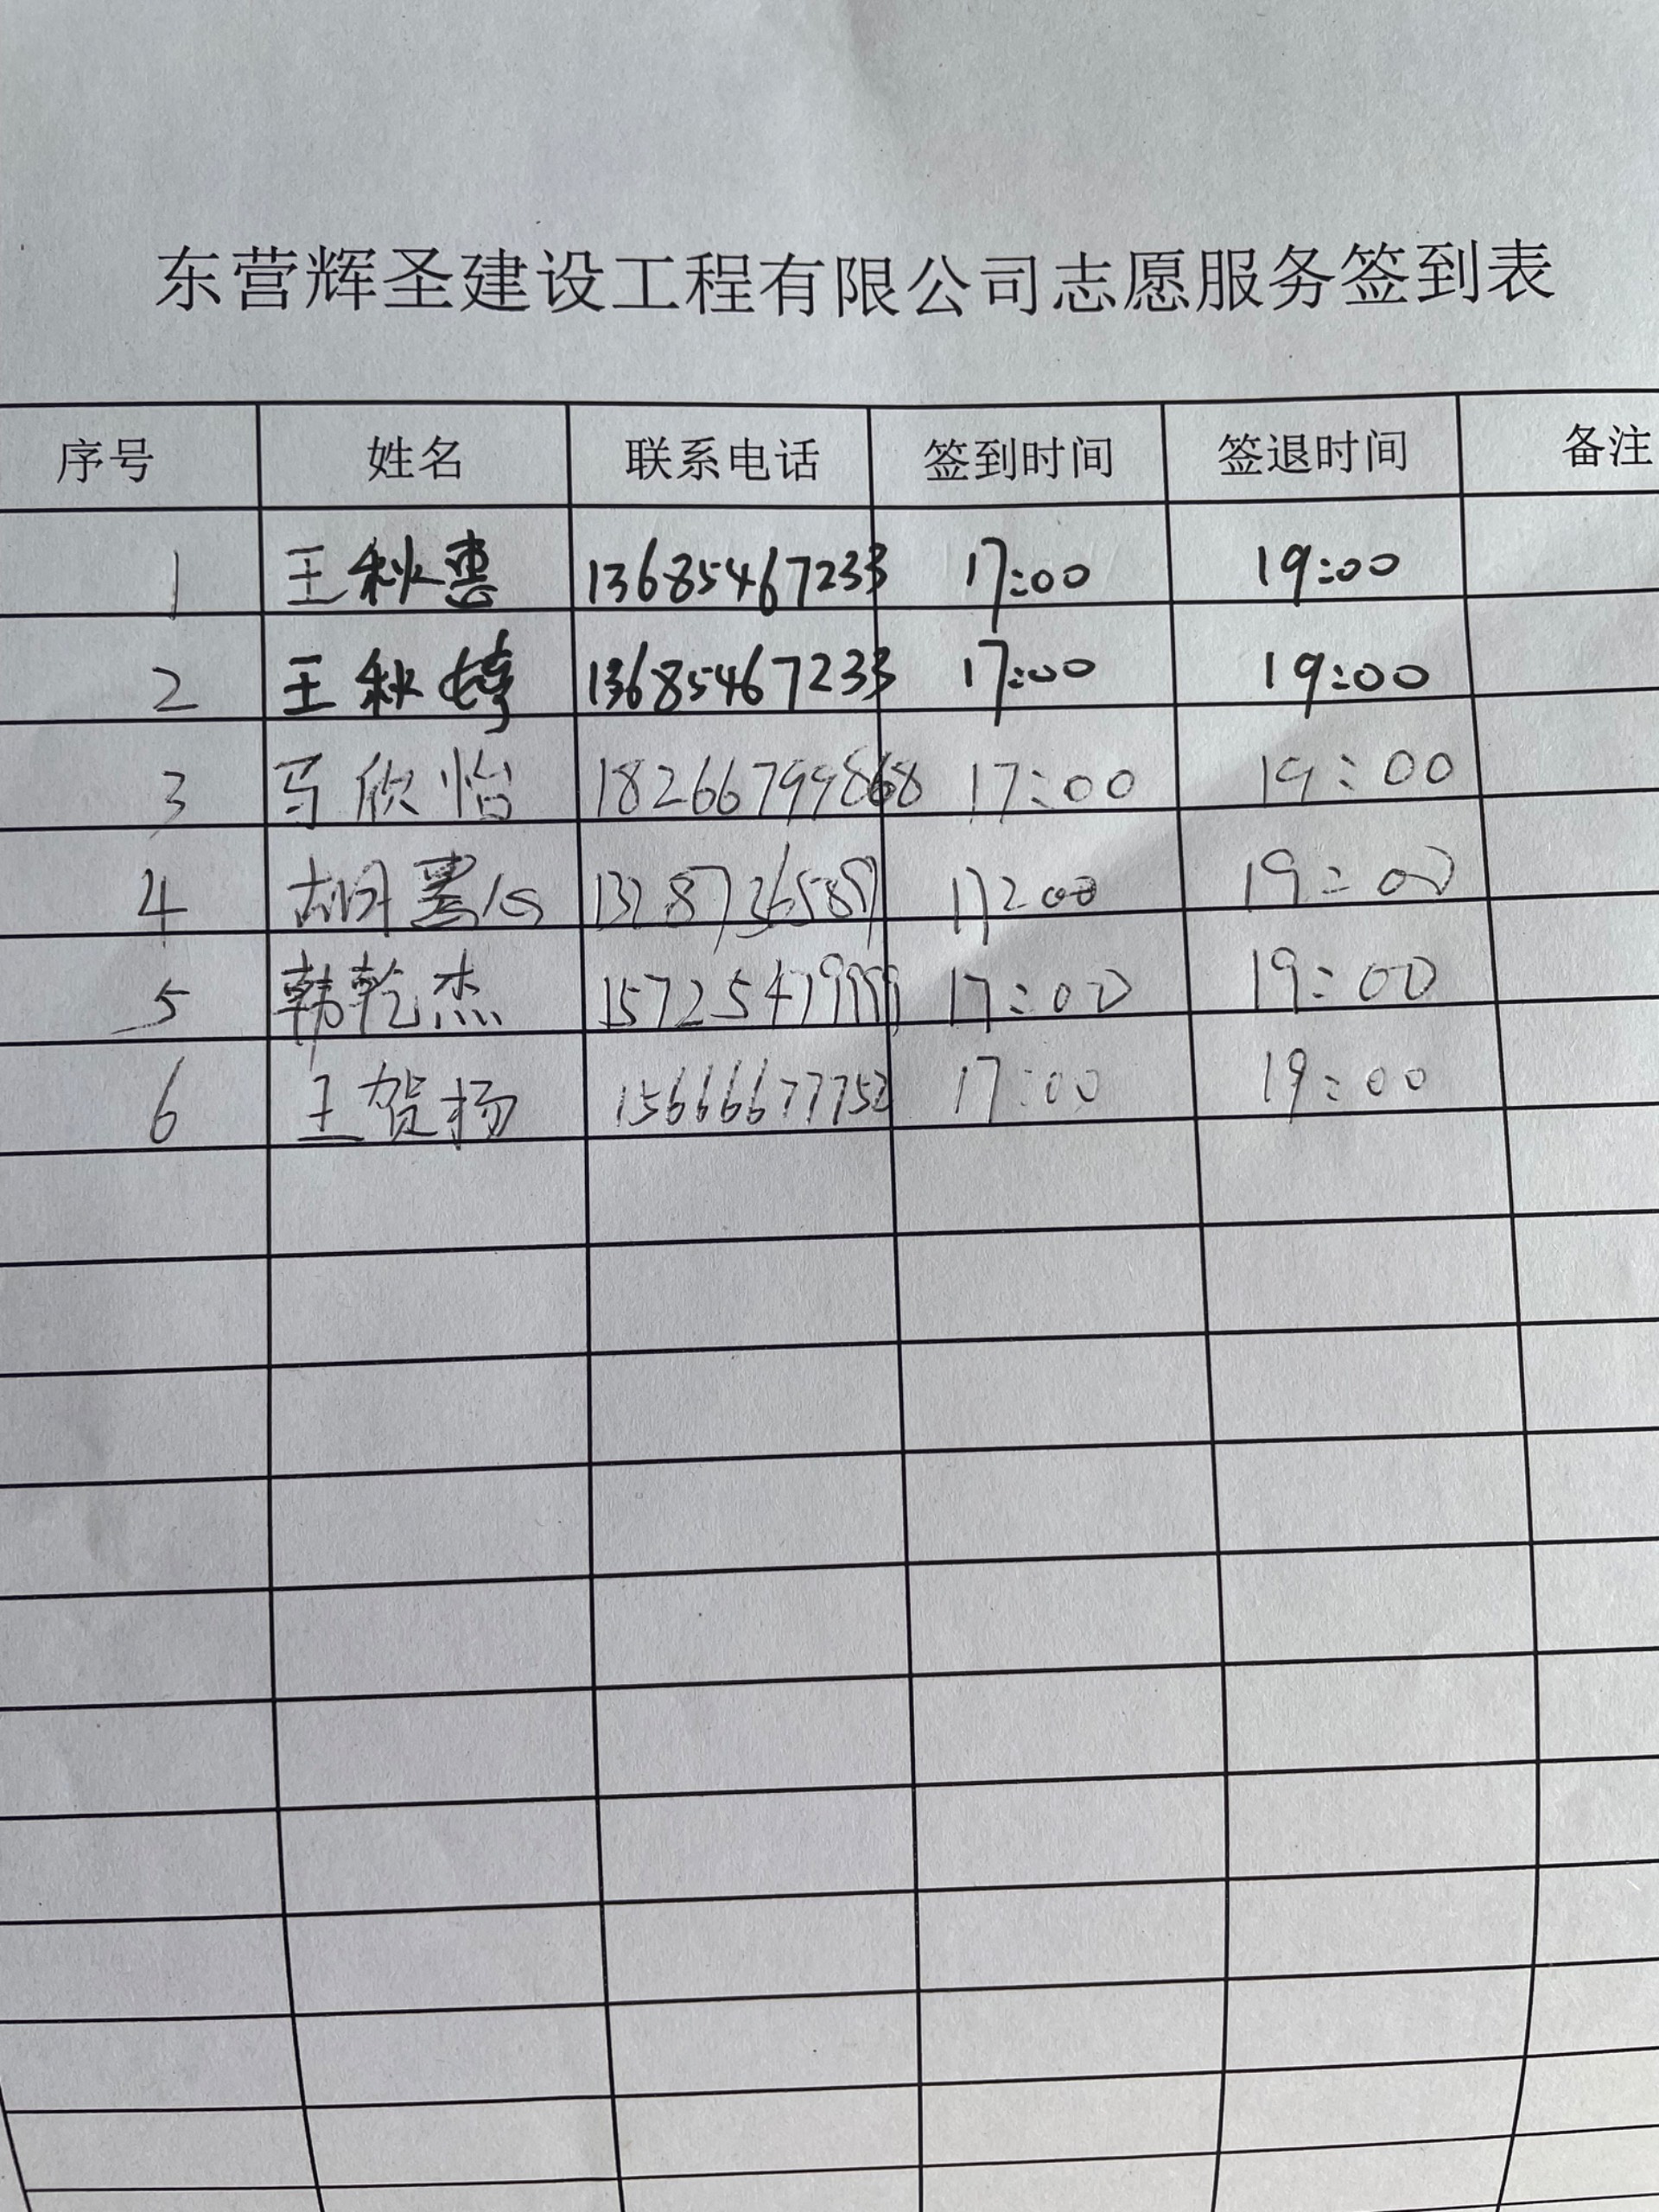 东营辉圣建设工程有限公司志愿服务签到表
序号 姓名 联系电话 签到时间 签退时间 备注
1 王秋惠 13685467233 17:00 19:00
2 王秋婷 13685467233 17:00 19:00
3 马欣怡 18266799868 17:00 19:00
4 胡 17:00 19:00
5 韩乾杰 17:00 19:00
6 王贺扬 15666677752 17:00 19:00